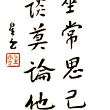 坐常思己
談莫論他
星云